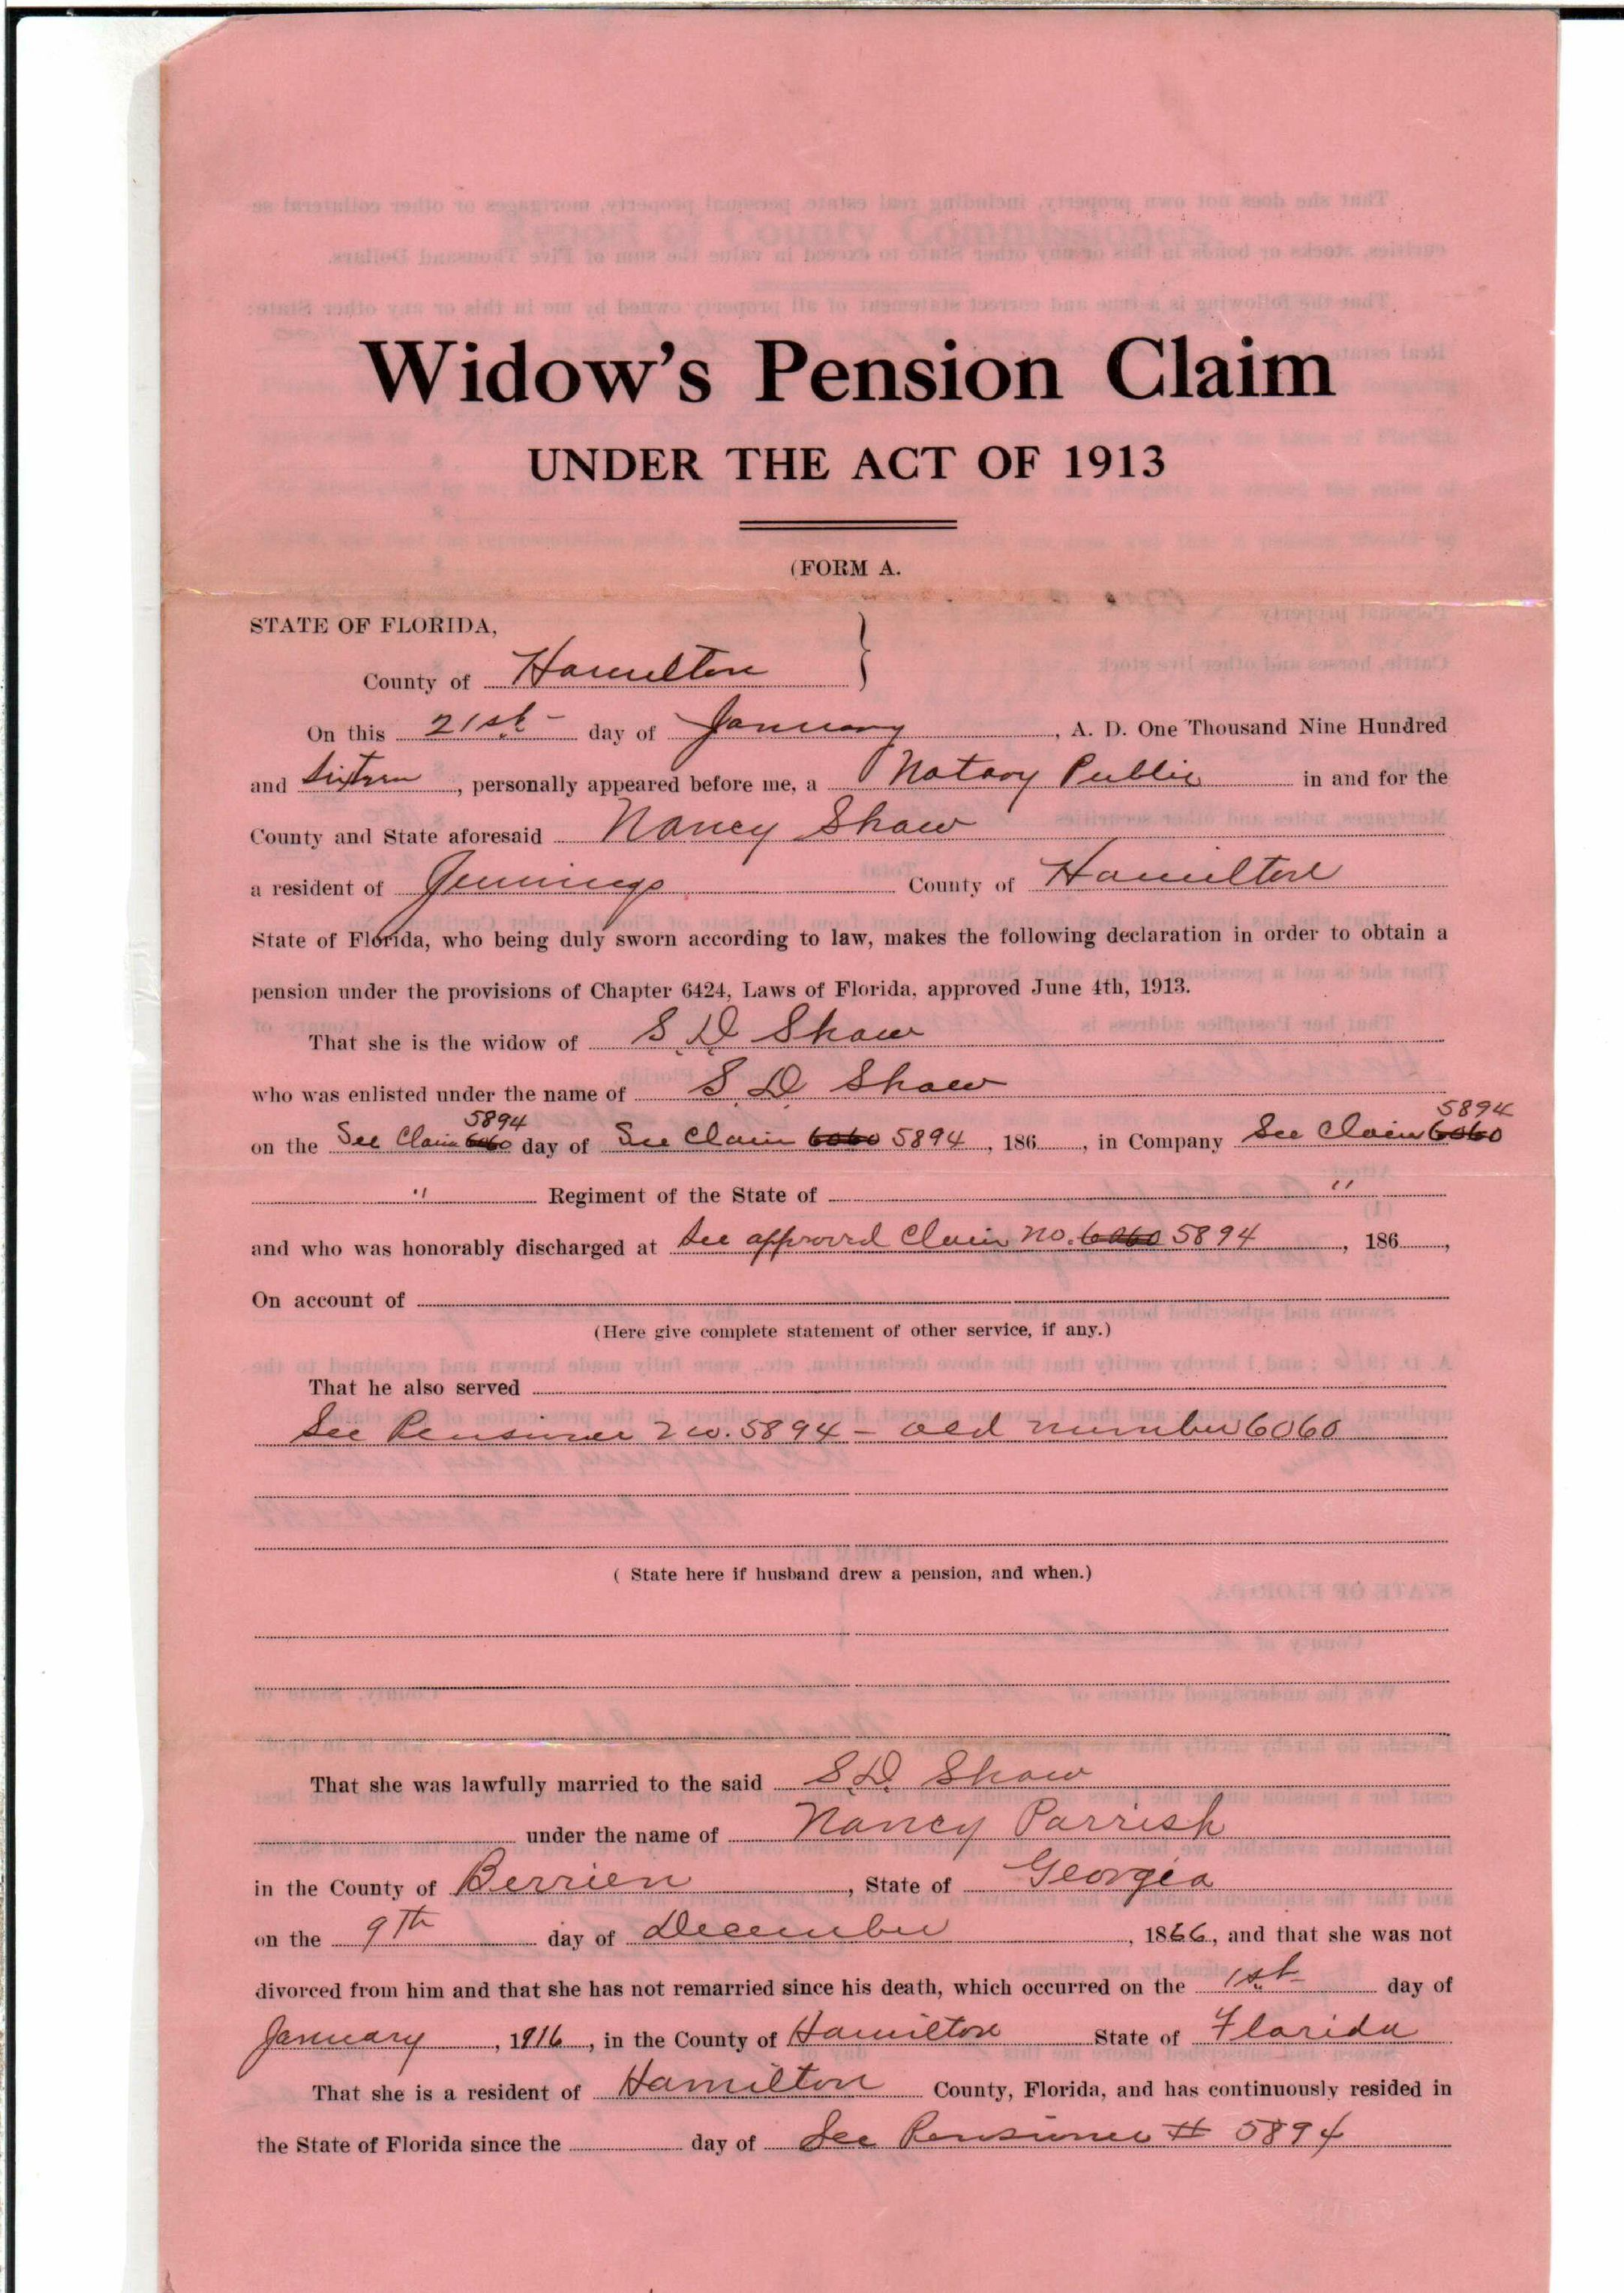 Widow's Pension Claim
UNDER THE ACT OF 1913
(FORM A.
STATE OF FLORIDA,
County of Hamilton }
On this 21st day of January, A. D. One Thousand Nine Hundred
and Sixteen, personally appeared before me, a Notary Public in and for the
County and State aforesaid Nancy Shaw
a resident of Jennings County of Hamilton
State of Florida, who being duly sworn according to law, makes the following declaration in order to obtain a
pension under the provisions of Chapter 6424, Laws of Florida, approved June 4th, 1913.
That she is the widow of S. D. Shaw
who was enlisted under the name of S. D. Shaw
5894 5894
on the See Claim 6060 day of See Claim 6060 5894, 186, in Company See Claim 6060
" Regiment of the State of "
and who was honorably discharged at See approved Claim No. 6060 5894, 186,
On account of
(Here give complete statement of other service, if any.)
That he also served
See Pensioner no. 5894 - old number 6060
( State here if husband drew a pension, and when.)
That she was lawfully married to the said S. D. Shaw
under the name of Nancy Parrish
in the County of Berrien, State of Georgia
on the 9Th day of December, 1866, and that she was not
divorced from him and that she has not remarried since his death, which occurred on the 1st day of
January, 1916, in the County of Hamilton State of Florida
That she is a resident of Hamilton County, Florida, and has continuously resided in
the State of Florida since the day of See Pensioner # 5894